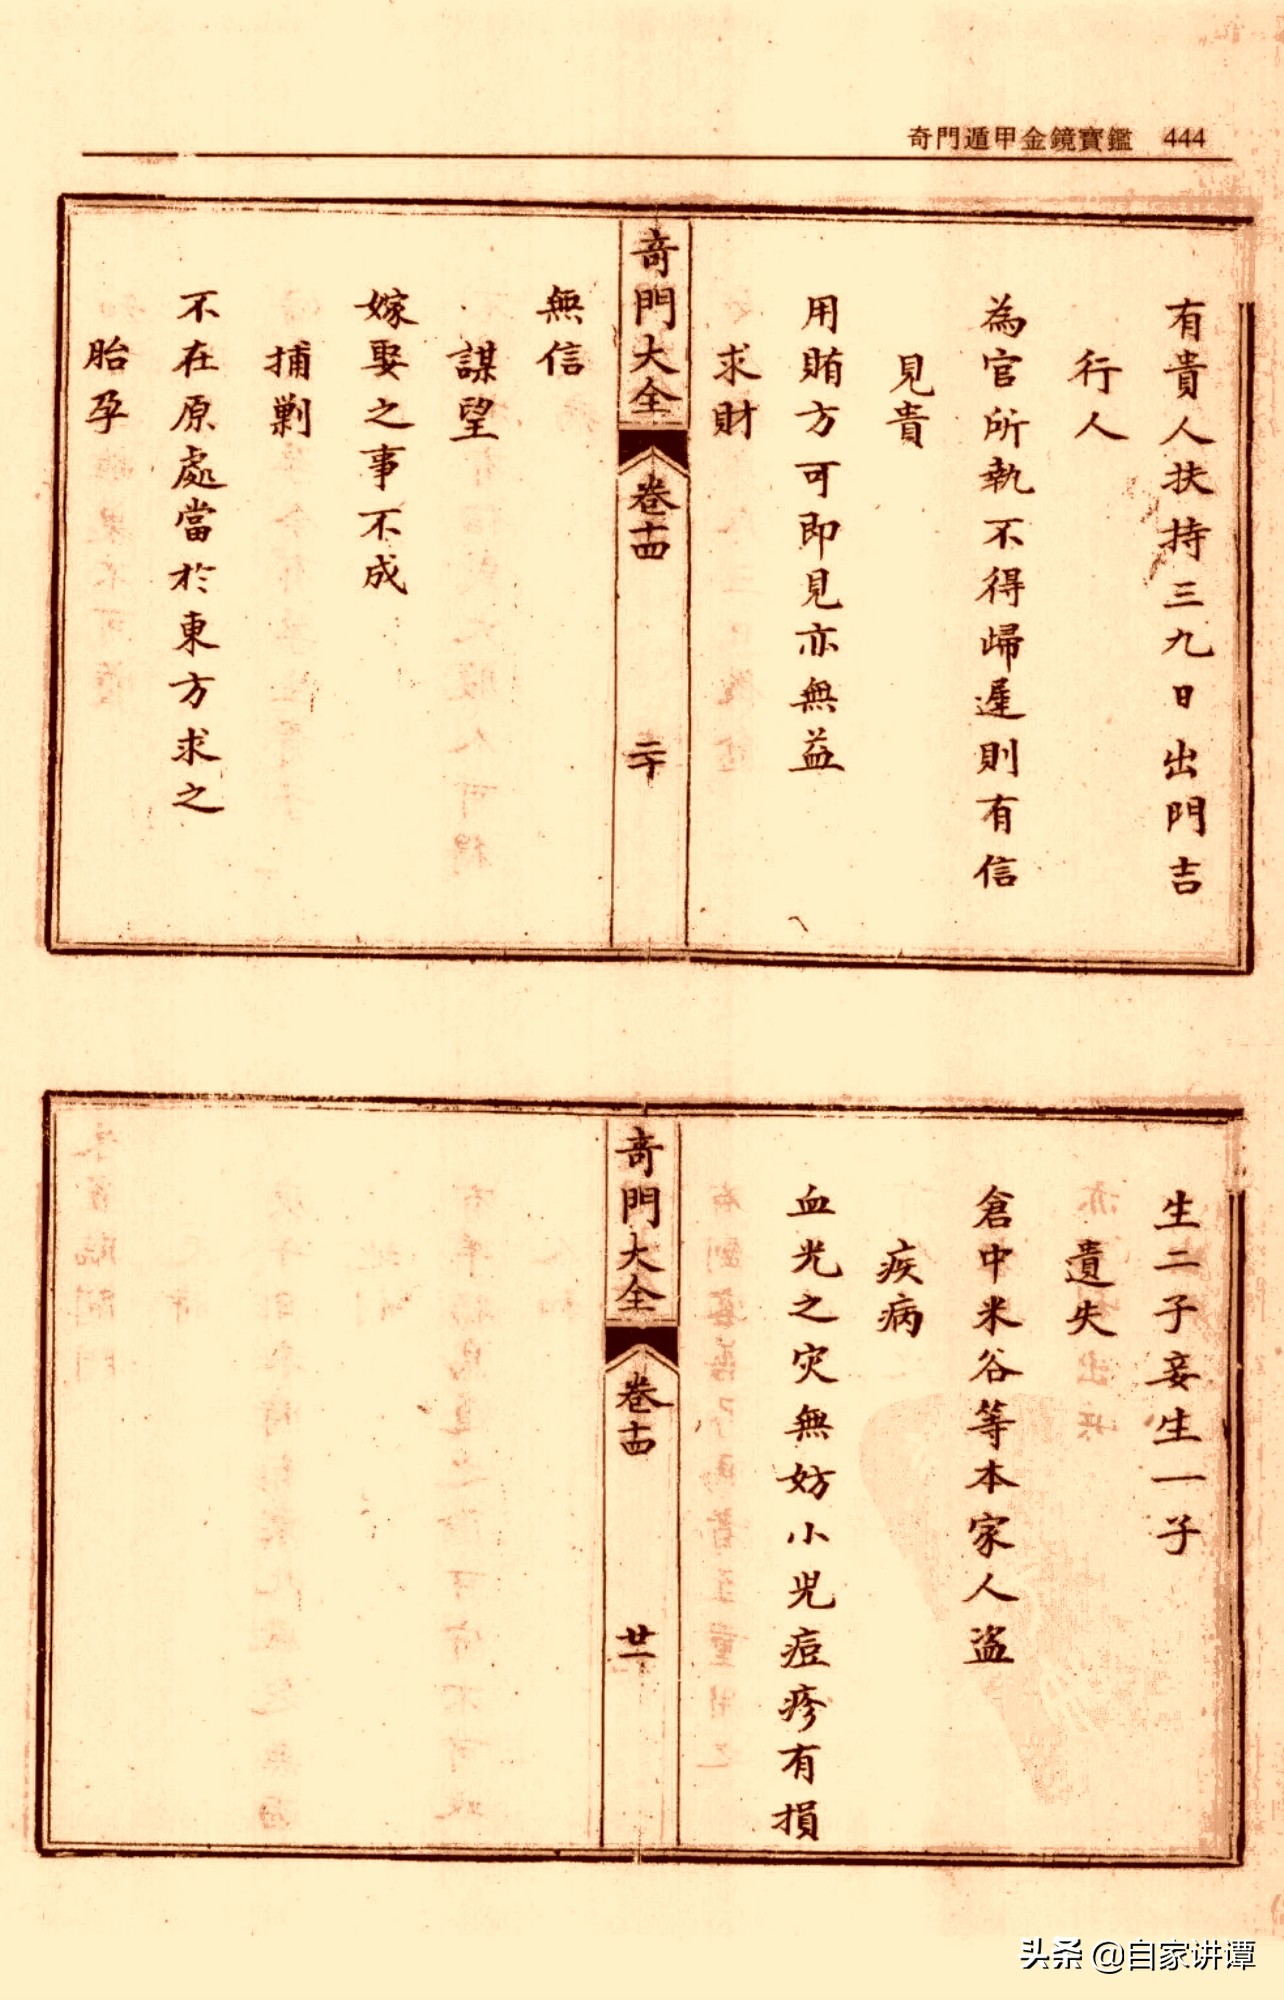 奇門遁甲金鏡寶鑑 444
有貴人扶持三九日出門吉
行人
為官所執不得歸遲則有信
見貴
用賄方可即見亦無益
求財
奇門大全 卷十四 二十
無信
謀望
嫁娶之事不成
捕剿
不在原處當於東方求之
胎孕
生二子妾生一子
遺失
倉中米谷等本家人盜
疾病
血光之灾無妨小兒痘疹有損
奇門大全 卷十四 廿一
头条 @自家讲谭